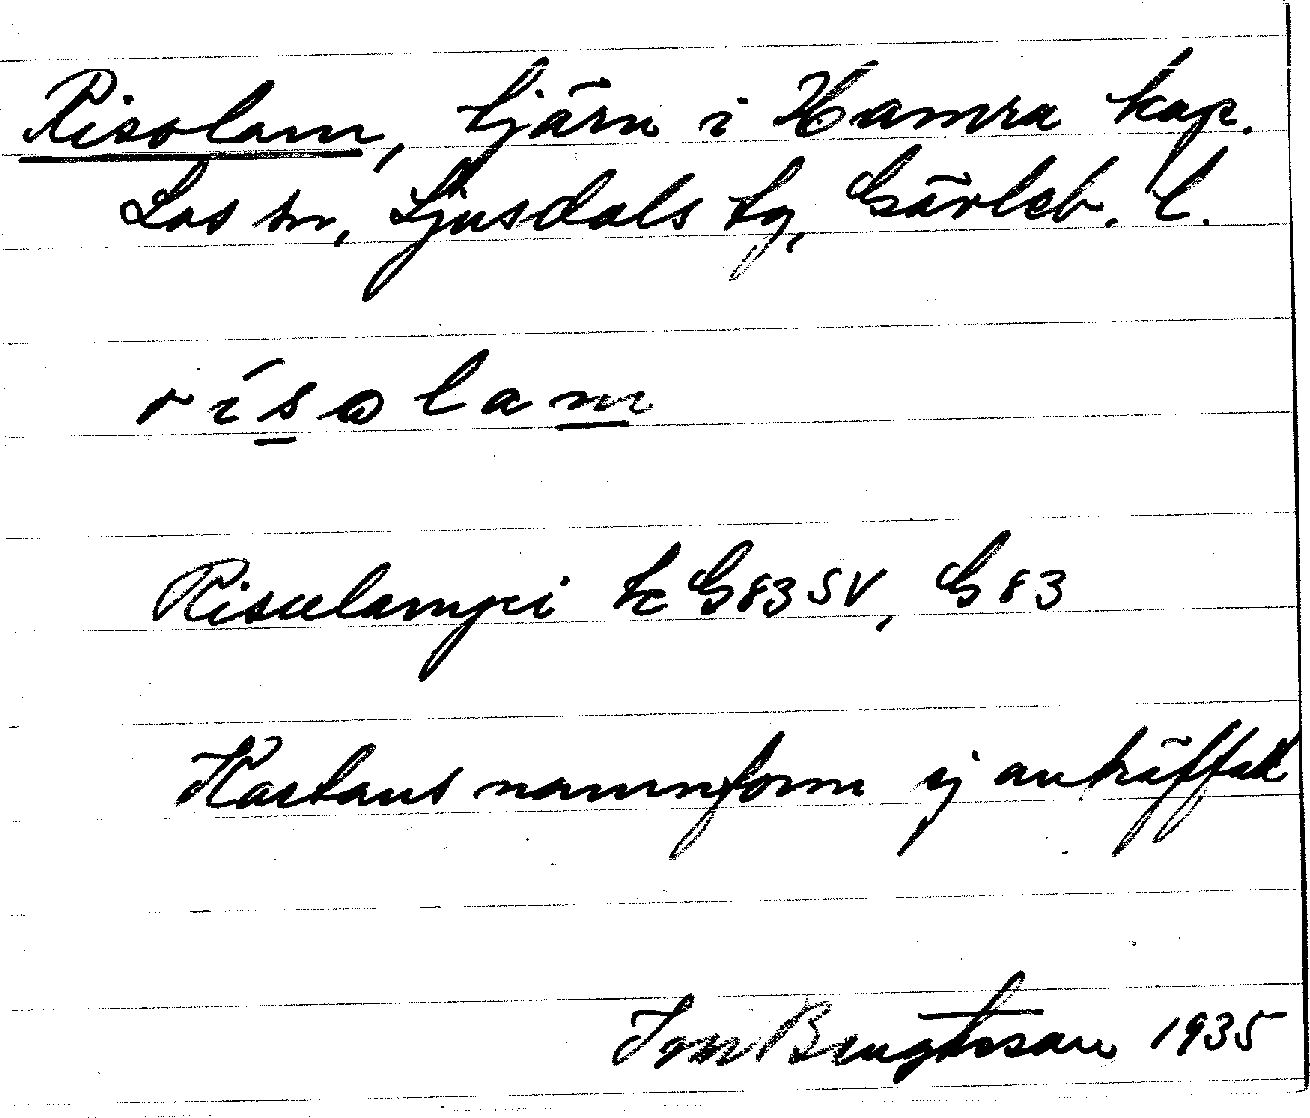 Risolam, tjärn i Hamra kap.
Los sn, Ljusdals tg, Gävleb. l.
rísolam
Risulampi Ec G83SV, G83
Kartans namnform ej anträffad
Bengtsson 1935